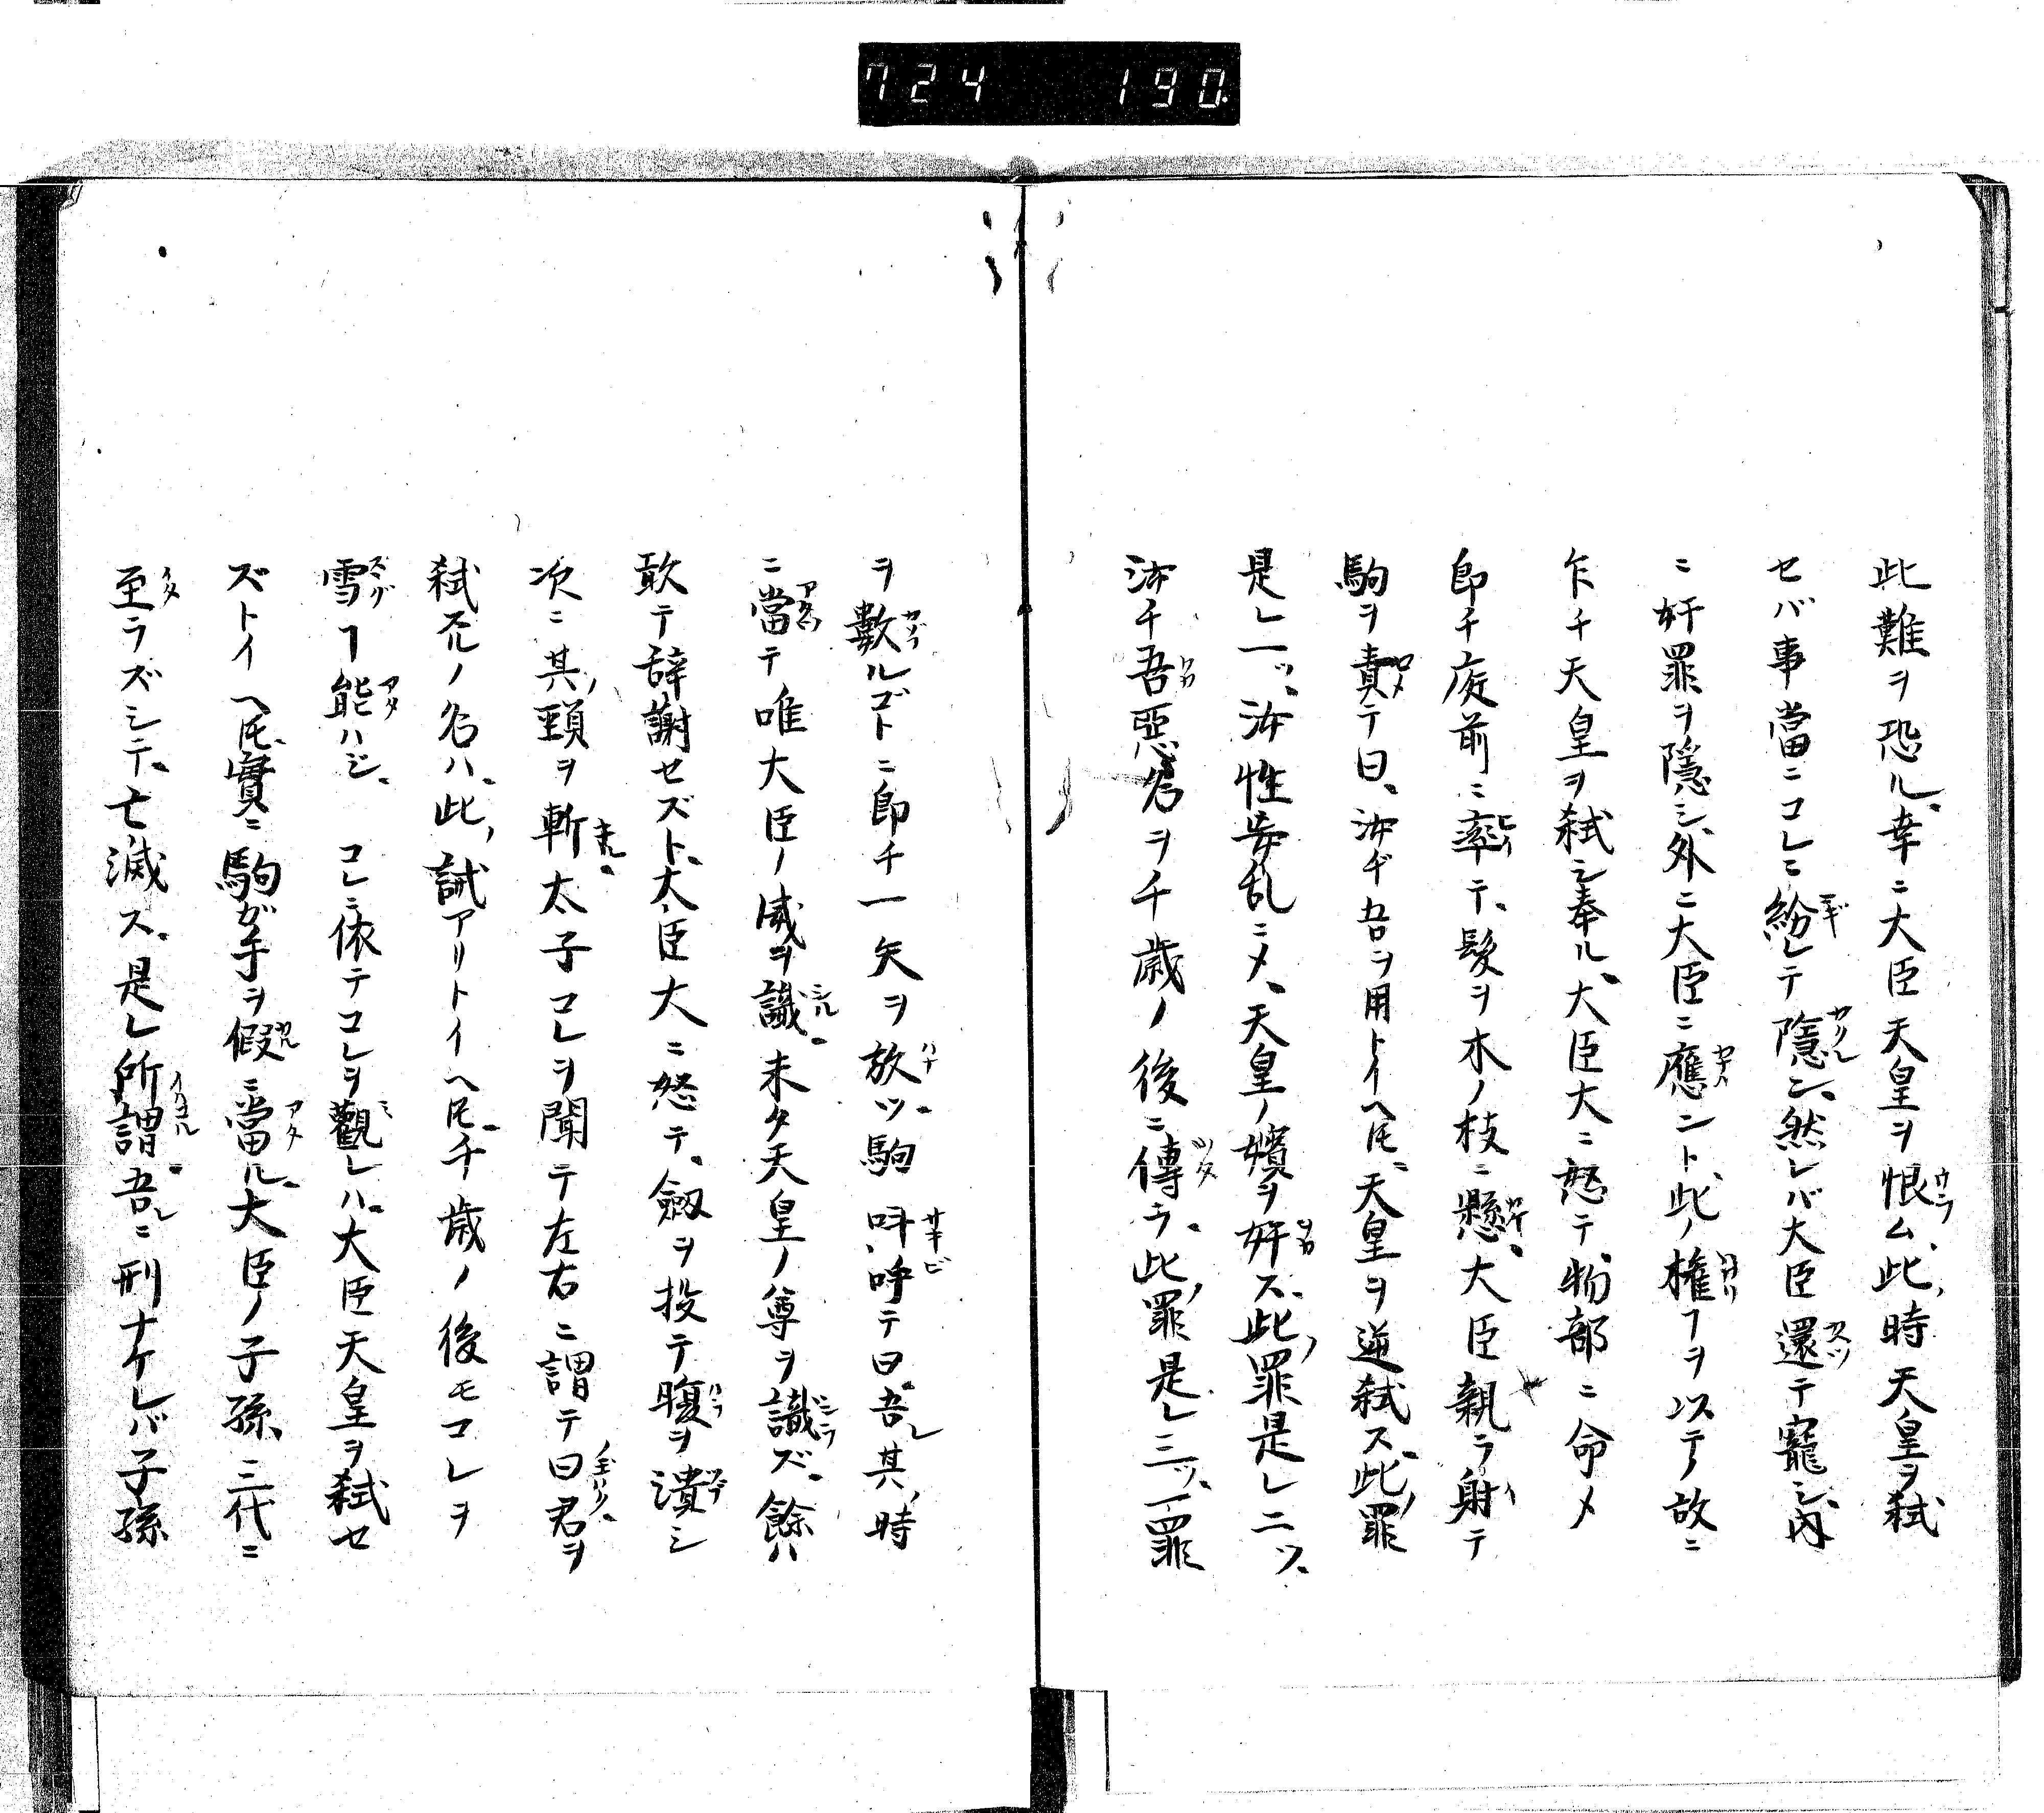 724 190
此難ヲ恐ル幸ニ大臣天皇ヲ恨ム此時天皇ヲ弑
セバ事當ニコレニ紛レテ隱シ然レバ大臣還テ寵シ内
ニ奸罪ヲ隱シ外ニ大臣ニ應ント此ノ權ヿヲ以ステノ故ニ
乍チ天皇ヲ弑シ奉ル大臣大ニ怒テ物部ニ命メ
即チ庭前ニ率テ髮ヲ木ノ枝ニ懸大臣親ラ射テ
駒ヲ責テ曰汝ヂ吾ヲ用トイヘ𪜈天皇ヲ逆弑ス此罪
是レ一ツ汝性妄乱ニメ天皇ノ嬪ヲ奸ス此罪是レ二ツ
汝チ吾惡名ヲ千歳ノ後ニ傳ラ此罪是レ三ツ一罪
ヲ數ルゴトニ即チ一矢ヲ放ツ駒呌呼テ曰吾レ其時
ニ當テ唯大臣ノ威ヲ識未タ天皇ノ尊ヲ識ズ餘ハ
敢テ辞謝セズト大臣大ニ怒テ劔ヲ投テ腹ヲ潰シ
次ニ其頸ヲ斬太子コレヲ聞テ左右ニ謂テ曰君ヲ
弑スルノ名ハ此誡アリトイヘ𪜈千歳ノ後モコレヲ
雪ヿ能ハジ コレニ依テコレヲ觀レハ大臣天皇ヲ弑セ
ズトイヘ𪜈實ニ駒ガ手ヲ假ニ當ル大臣ノ子孫三代ニ
至ラズシテ亡滅ス是レ所謂吾ニ刑ナケレバ子孫